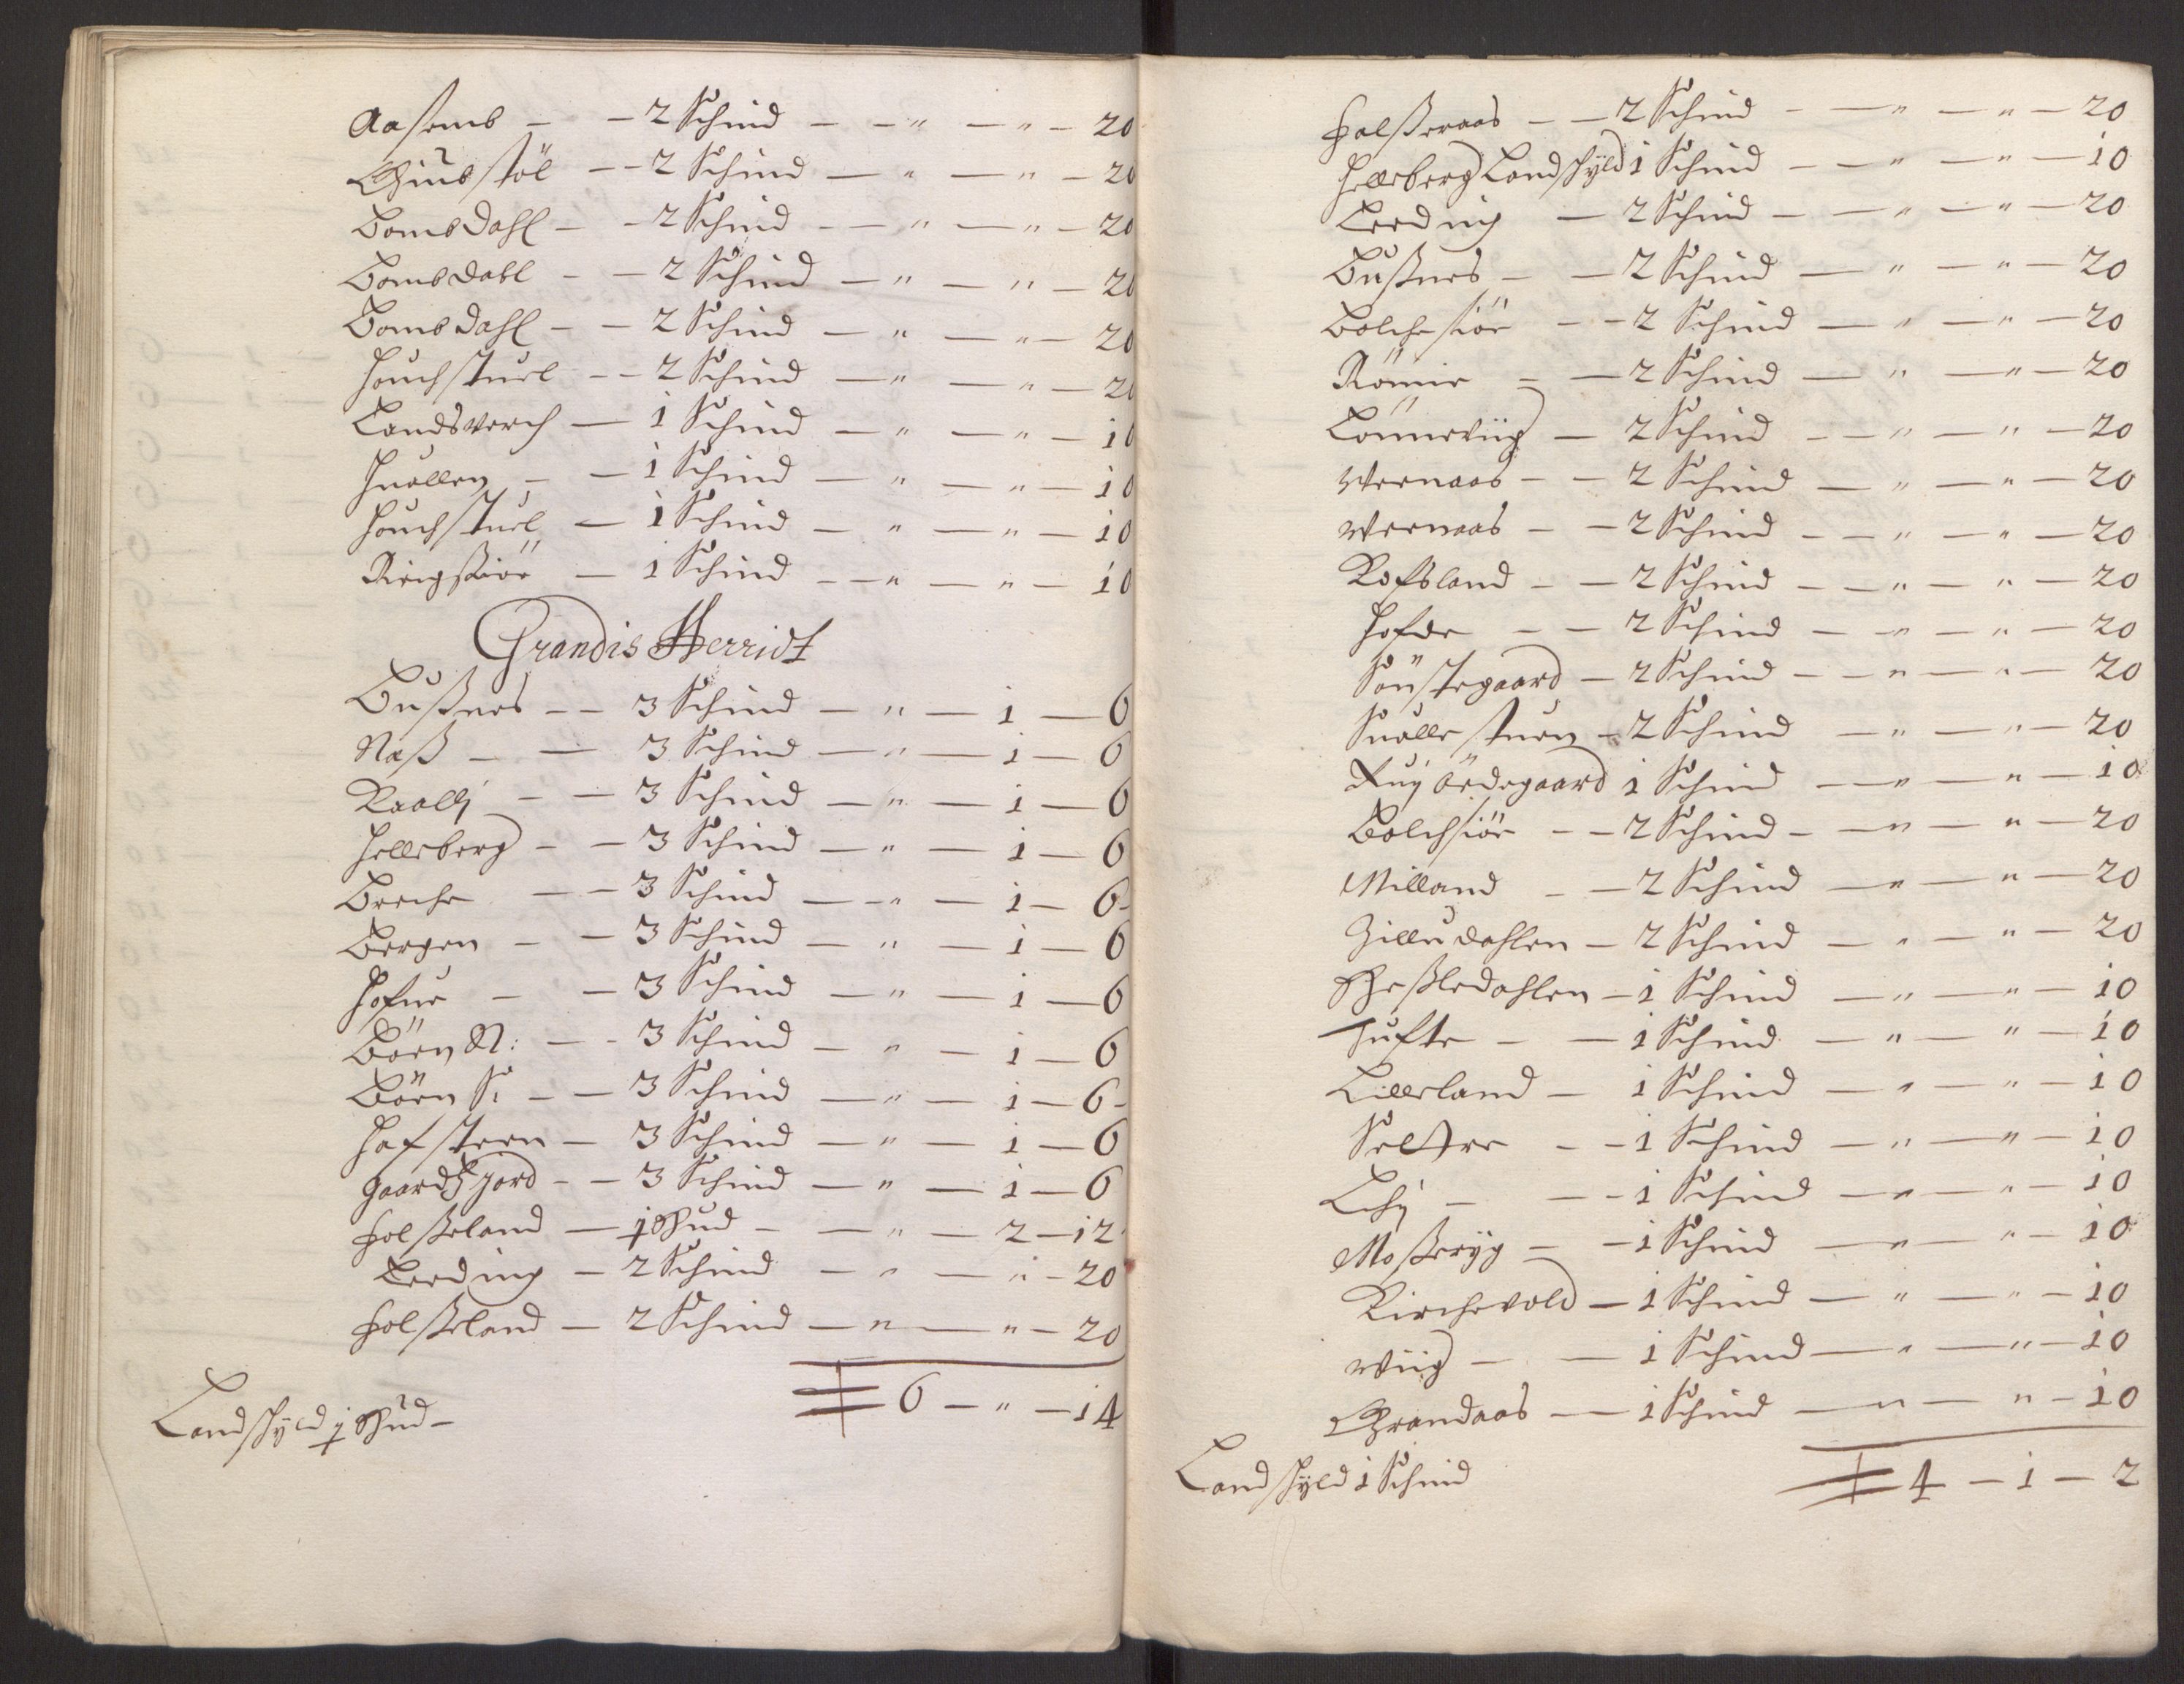 Aasemb - - 2 Schind - - " - " - 20
Giusstöl - - 2 Schind - " - " - 20
Bombdahl - - 2 Schind - - " - " - 20
Bombdahl - - 2 Schind - " - " - 20
Bombdahl - - 2 Schind - " - " - 20
Houchstuel - - 2 Schind - " - " - 20
Landsverch - 1 Schind - " - " - 10
Huallen - - 1 Schind - " - " - 10
Houchstuel - 1 Schind - " - " - 10
Ringssiör - 1 Schind - - " - " - 10
Grandis Herridt
Bussnes - - 3 Schind - " - 1 - 6
Næss - - 3 Schind - " - 1 - 6
Raallj - - 3 Schind - " - 1 - 6
Helleberg - - 3 Schind - " - 1 - 6
Breche - - 3 Schind - - " - 1 - 6 -
Bergen - - 3 Schind - " - 1 - 6
Hofue - - 3 Schind - " - 1 - 6
Börn N: - - 3 Schind - " - 1 - 6
Börn S: - - 3 Schind - " - 1 - 6 -
Hafsteen - 3 Schind - " - 1 - 6
Gaardsjord - - 3 Schind - " - 1 - 6
Folsseland - 1 Hud - - " - 2 - 12
Leeding - 2 Schind - " - " - 20
Folsseland - 2 Schind - " - " - 20
6 - " - 14
Landschyld 1 Hud -
Folsseraas - - 2 Schind - - " - " - 20
Helleberg Landschyld 1 Schind - - " - " - 10
Leeding - 2 Schind - - " - " - 20
Bussnes - - 2 Schind - " - " - 20
Bolchesiör - - 2 Schind - " - " - 20
Römie - - 2 Schind - " - " - 20
Lönneviig - 2 Schind - - " - " - 20
Wernaas - - 2 Schind - " - " - 20
Wernaas - - 2 Schind - - " - " - 20
Rofsland - - 2 Schind - - " - " - 20
Hofde - - 2 Schind - - " - " - 20
Sönstegaard - 2 Schind - - " - " - 20
Sualle stuen - 2 Schind - " - " - 20
Ruj ödegaard 1 Schind - " - " - 10
Bolchsiör - - 2 Schind - - " - " - 20
Milland - - 2 Schind - " - " - 20
Gilludahlen - 2 Schind - " - " - 20
Hessledahlen - 1 Schind - " - " - 10
Tufte - - 1 Schind - " - " - 10
Lillerland - 1 Schind - " - " - 10
Seltre - - 1 Schind - " - " - 10
Lihj - - - 1 Schind - " - " - 10
Mosseryg - - 1 Schind - " - " - 10
Kirchevold - 1 Schind - " - " - 10
Wiig - - 1 Schind - " - " - 10
Grandaas - 1 Schind - " - " - 10
4 - 1 - 2
Landschyld 1 Schind